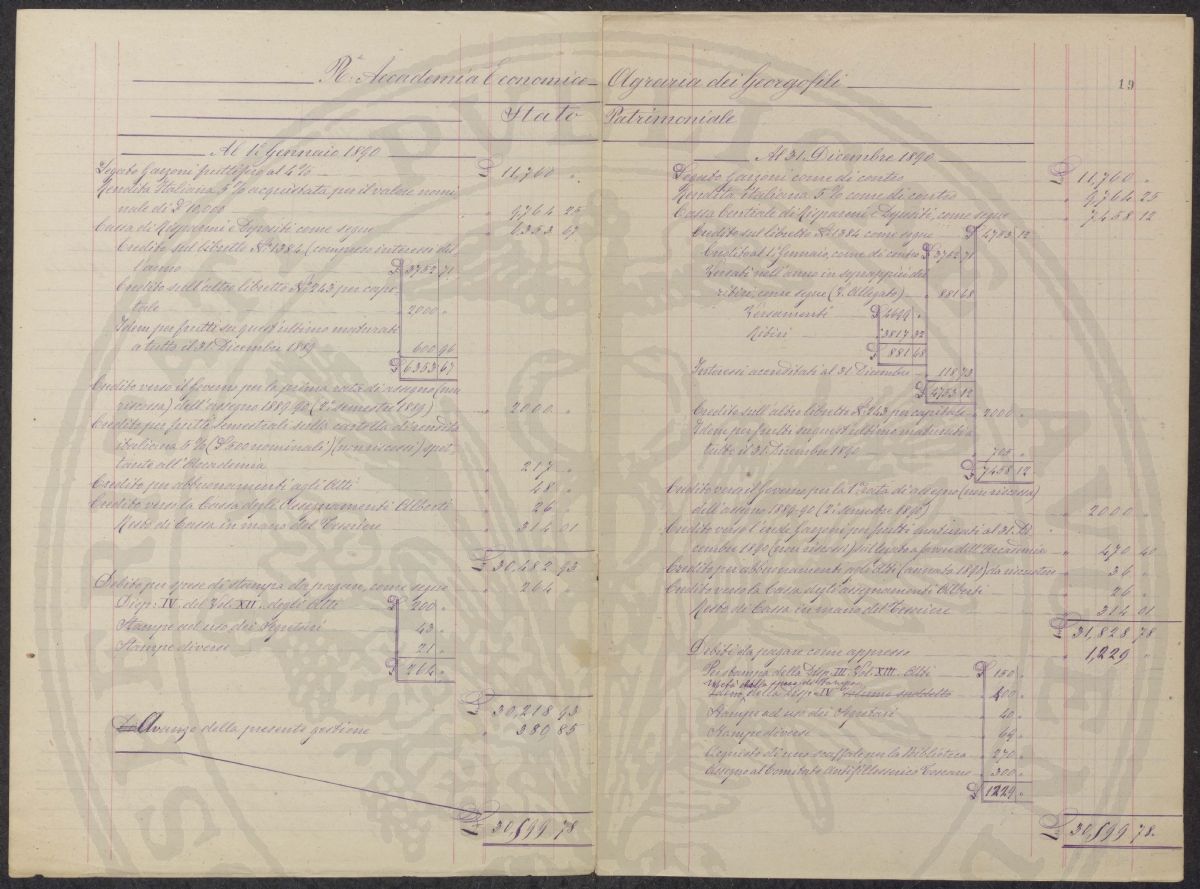 19
R. Accademia Economico-Agraria dei Georgofili
Stato Patrimoniale
Al 1° Gennaio 1890
Legato Gazzoni fruttifero al 4% £ 11,760 „
Rendita Italiana 5% acquistata per il valore nomi-
nale di £ 10,000 „ 9,764 25
Cassa di Risparmi e Depositi come segue „ 6353 67
Credito sul libretto N° 1384 (compresi interessi del-
l'anno £ 3752 71
Credito sull'altro libretto N° 243 per capi-
tale „ 2000 „
Idem per frutti su quest'ultimo maturati
a tutto il 31 Dicembre 1889 „ 600 96
£ 6353 67
Credito verso il Governo per la prima rata di assegno (non
riscossa) dell'assegno 1889-90 (2° semestre 1889) „ 2000 „
Credito per frutti semestrali sulla cartella di rendita
italiana 5% (£ 500 nominali) (non riscossi) spet-
tante all'Accademia „ 217 „
Credito per abbuonamenti agli Atti „ 48 „
Credito verso la Cassa degli Assegnamenti Alberti „ 26 „
Resto di Cassa in mano del Tesoriere „ 314 01
£ 30,482 93
Debito per spese di stampa da pagare, come segue „ 264 „
Disp: IV del Vol. XII. degli Atti £ 200 „
Stampe ad uso dei Segretari „ 43 „
Stampe diverse „ 21 „
£ 264 „
£ 30,218 93
Avanzo della presente gestione „ 380 85
£ 30,599 78
Al 31 Dicembre 1890
Legato Gazzoni come di contro £ 11,760 „
Rendita italiana 5% come di contro „ 9,764 25
Cassa Centrale di Risparmi e Depositi come segue „ 7458 12
Credito sul libretto N° 1384 come segue £ 4753 12
Credito al 1° Gennaio, come di contro £ 3752 71
Versati nell'anno in soprappiù dei
ritiri, come segue (V. Allegato) „ 881 68
Versamenti £ 4699 „
Ritiri „ 3817 32
£ 881 68
Interessi accreditati al 31 Dicembre „ 118 73
£ 4753 12
Credito sull'altro libretto N° 243 per capitale „ 2000 „
Idem per frutti su quest'ultimo maturati a
tutto il 31 Dicembre 1890 „ 705 „
£ 7458 12
Credito verso il Governo per la 1ª rata di assegno (non riscossa)
dell'assegno 1890-90 (2° semestre 1890) „ 2000 „
Credito verso l'erede Gazzoni per frutti maturati al 31 Di-
cembre 1890 (non riscossi) sul legato a favore dell'Accademia „ 470 40
Credito per abbuonamenti agli Atti (annata 1890) da riscuotere „ 36 „
Credito verso la Cassa degli assegnamenti Alberti „ 26 „
Resto di Cassa in mano del Tesoriere „ 314 01
£ 31,828 78
Debiti da pagare come appresso „ 1,229 „
Per stampa della Disp: III. Vol. XIII. Atti £ 150 „
metà della spesa di stampa
della Disp: IV volume suddetto „ 400 „
Stampe ad uso dei Segretari „ 40 „
Stampe diverse „ 69 „
Acquisto di uno scaffale per la Biblioteca „ 270 „
Assegno al Comitato Antifillosserico Toscano „ 300 „
£ 1229 „
£ 30,599 78.